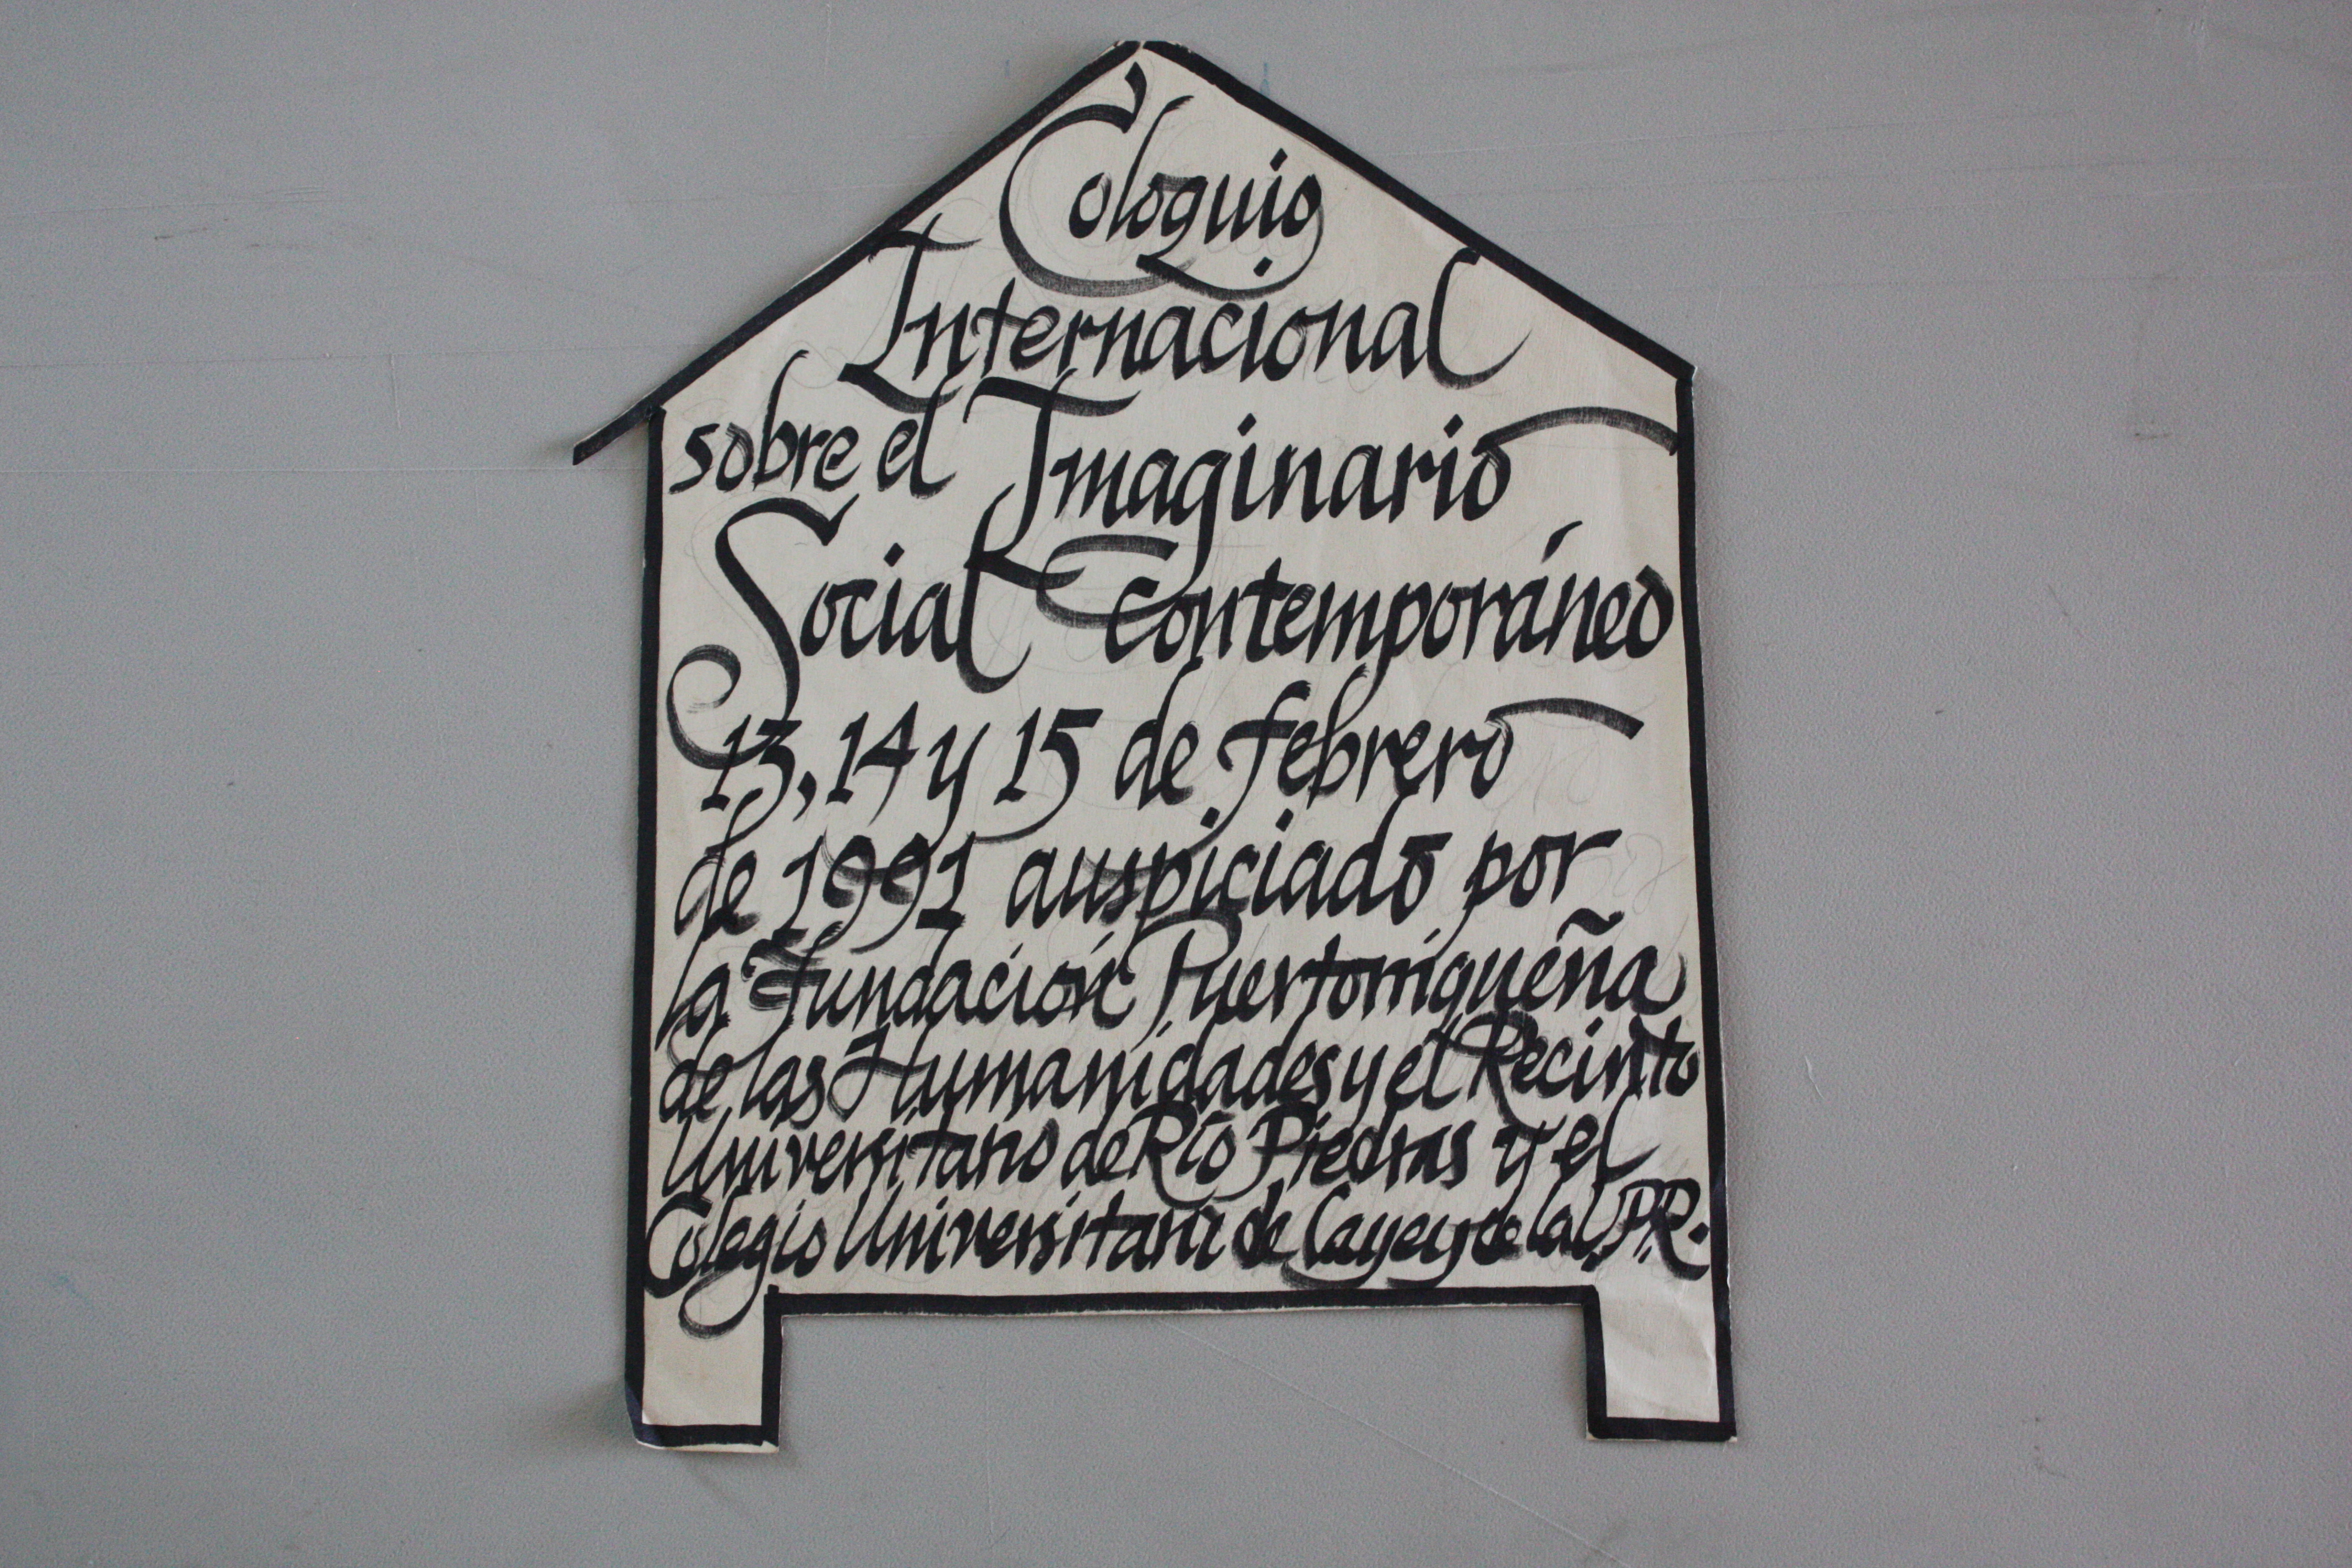 Coloquio
Internacional
sobre el Imaginario
Social Contemporáneo
13, 14 y 15 de febrero
de 1991 auspiciado por
la Fundación Puertorriqueña
de las Humanidades y el Recinto
Universitario de Río Piedras y el
Colegio Universitario de Cayey de la U.P.R.